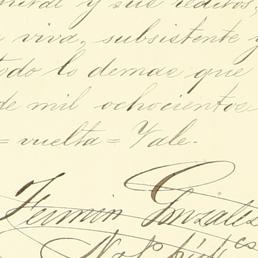 y sus réditos,
viva, subsistente y
todo lo demas que
de mil ochocientos
= vuelta = Vale.
Fermin Gonzales